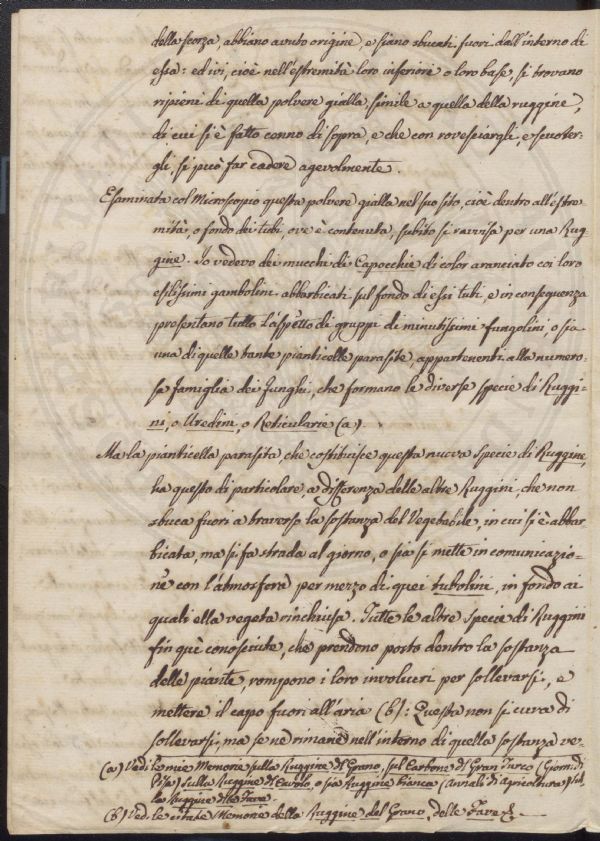 della scorza, abbiano avuto origine, e siano sbucati fuori dall'interno di
essa: ed ivi, cioè nell'estremità loro inferiore o loro base, si trovano
ripieni di quella polvere gialla, simile a quella della ruggine,
di cui si è fatto cenno di sopra, e che con rovesciargli, e scuoter-
gli, si può far cadere agevolmente.
Esaminata col Microscopio questa polvere gialla nel suo sito, cioè dentro all'estre
mità, o fondo dei tubi, ove è contenuta, subito si ravvisa per una Rug-
gine. Io vedevo dei mucchi di Capocchie di color aranciato coi loro
esilissimi gambolini abbarbicati sul fondo di essi tubi, e in conseguenza
presentano tutto l'aspetto di gruppi di minutissimi fungolini, o sia
una di quelle tante pianticelle parasite, appartenenti alla numero-
sa famiglia dei Funghi, che formano le diverse specie di Ruggi-
ni, o Uredini, o Reticularie (a).
Ma la pianticella parasita che costituisce questa nuova specie di Ruggine,
ha questo di particolare, a differenza delle altre Ruggini, che non
sbuca fuori a traverso la sostanza del Vegetabile, in cui si è abbar
bicata, ma si fa strada al giorno, o sia si mette in comunicazio-
ne con l'atmosfera per mezzo di quei tubolini, in fondo ai
quali ella vegeta rinchiusa. Tutte le altre specie di Ruggini
fin quì conosciute, che prendono posto dentro la sostanza
delle piante, rompono i loro involucri per sollevarsi, e
mettere il capo fuori all'aria (b): Questa non si cura di
sollevarsi, ma se ne rimane nell'interno di quella sostanza ve-
(a) Vedi le mie Memorie sulla Ruggine del Grano, sul Carbone del Gran Turco (Giorn. di
Pisa) sulla Ruggine del Cavolo, o sia Ruggine bianca (Annali di Agricoltura) sul
la Ruggine delle Fave.
(b) Ved. le citate Memorie della Ruggine del Grano, delle Fave &.